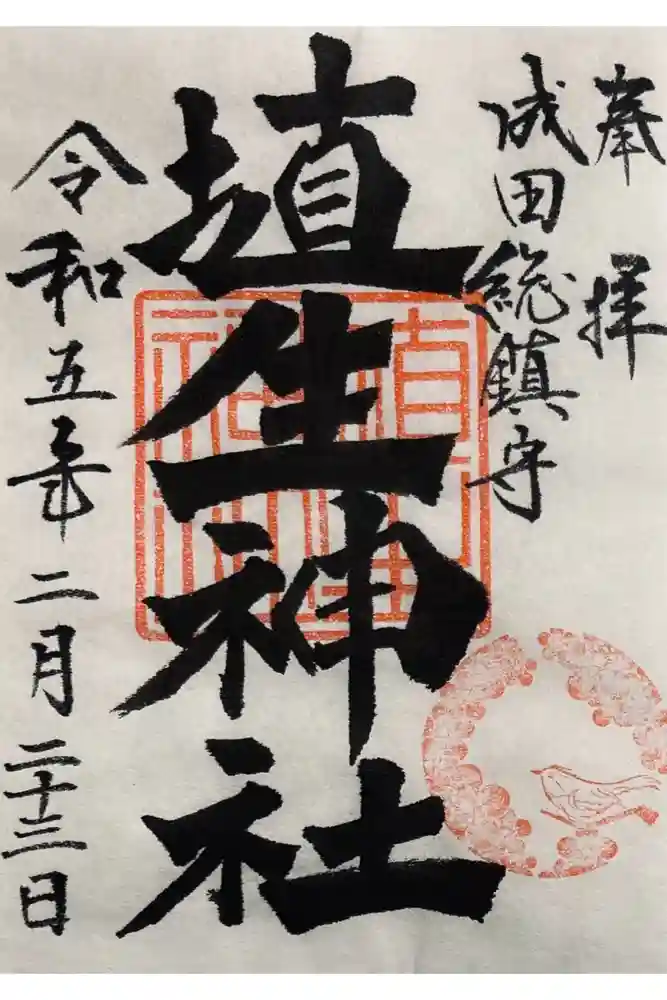 奉拝
成田総鎮守
埴生神社
令和五年二月二十三日